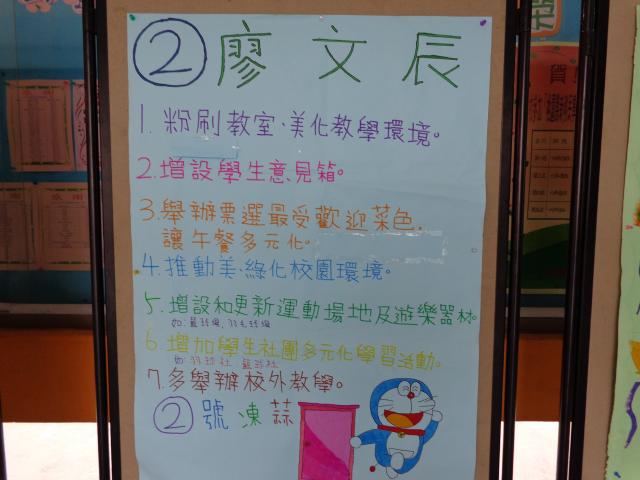 ② 廖文辰
1. 粉刷教室、美化教學環境。
2. 增設學生意見箱。
3. 舉辦票選最受歡迎菜色,
讓午餐多元化。
4. 推動美、綠化校園環境。
5. 增設和更新運動場地及遊樂器材
如:籃球場,羽毛球場
6. 增加學生社團多元化學習活動。
如:羽球社 籃球社
7. 多舉辦校外教學。
② 號凍蒜